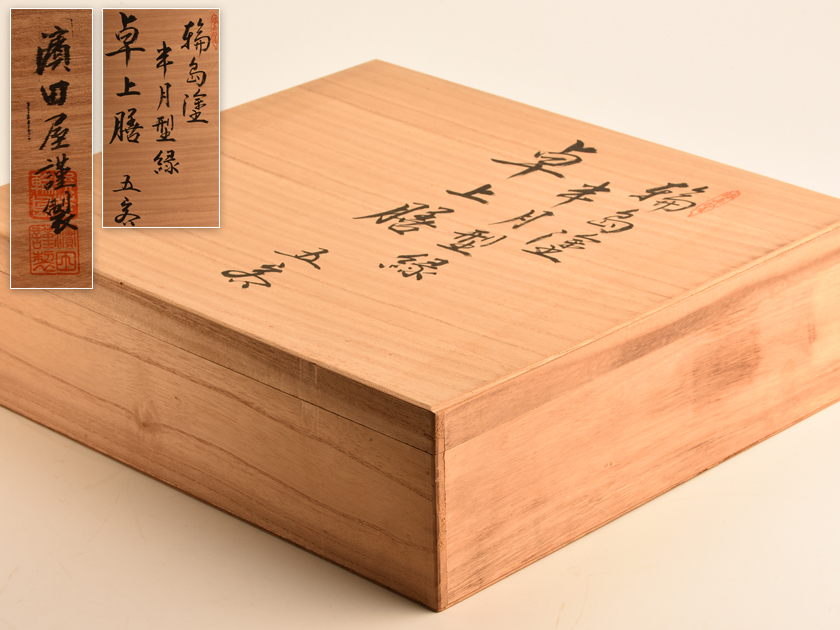 濱田屋謹製
輪島塗
半月型縁
卓上膳
五客
輪島塗
半月型縁
卓上膳
五客